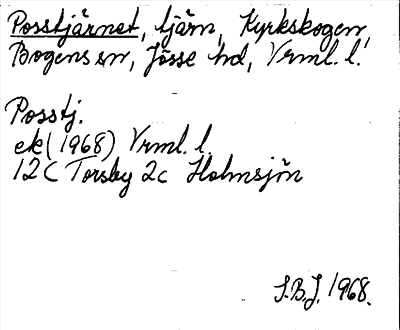 Posstjärnet, tjärn, Kyrkskogen,
Bogens sn, Jösse hd, Vrml. l.
Posstj.
ek (1968) Vrml. l.
12C Torsby 2c Holmsjön
S.B.J. 1968.